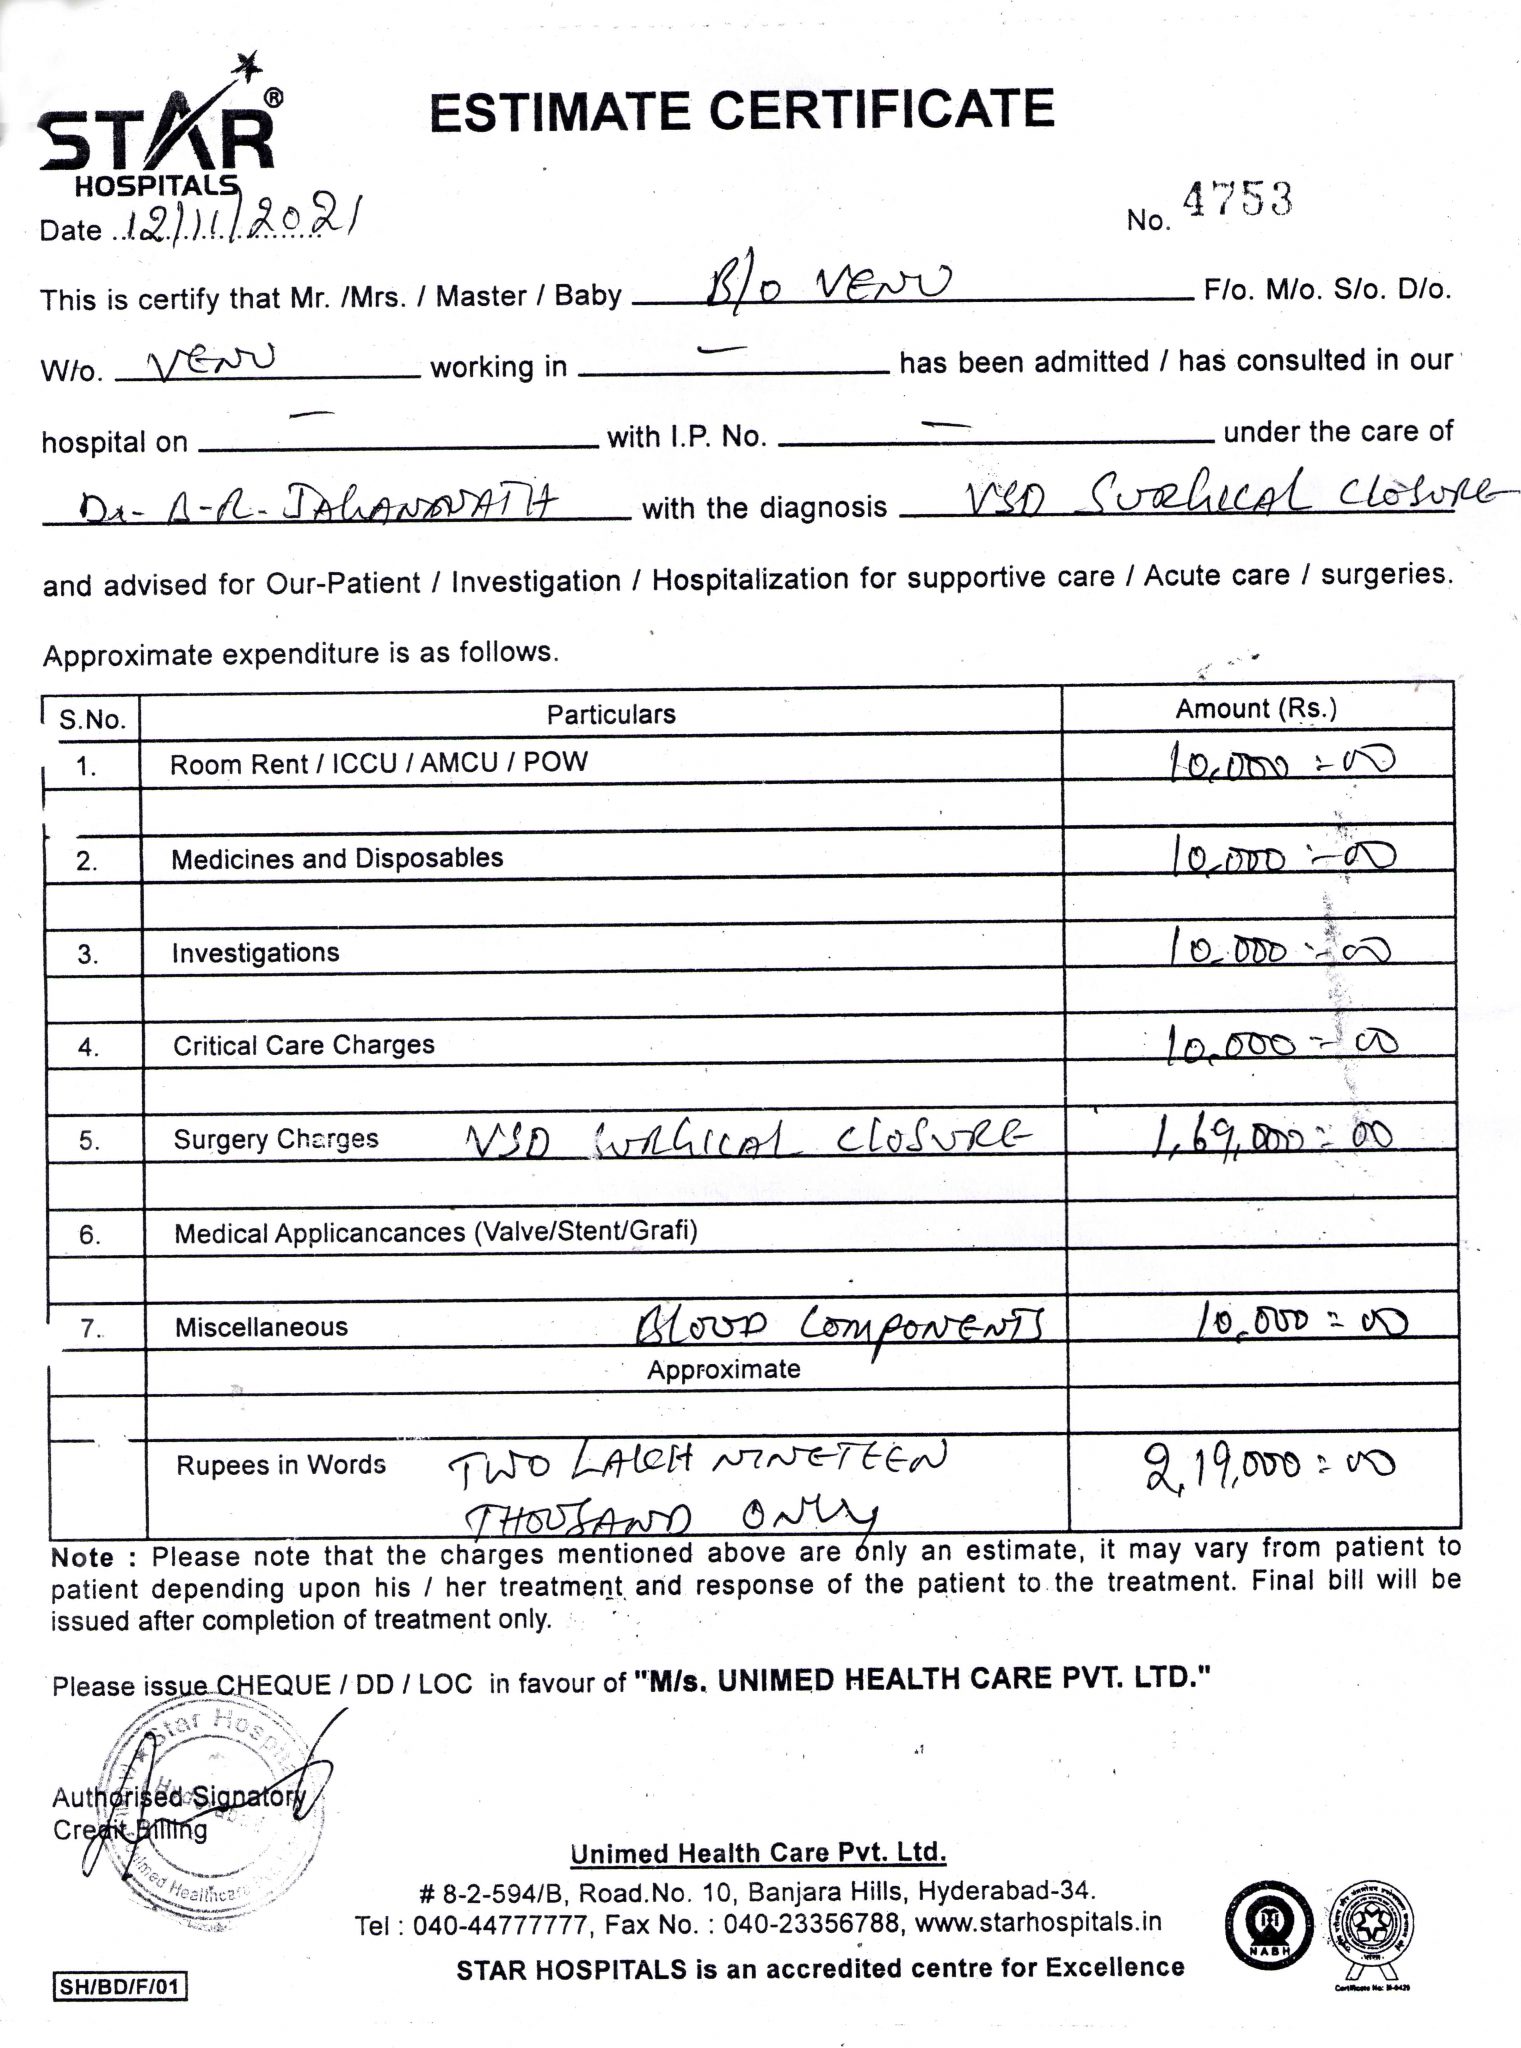 STAR®
HOSPITALS
ESTIMATE CERTIFICATE
Date 12/11/2021
No. 4753
This is certify that Mr. /Mrs. / Master / Baby B/o VENU F/o. M/o. S/o. D/o.
W/o. VENU working in — has been admitted / has consulted in our
hospital on — with I.P. No. — under the care of
Dr- A-R- JAGANNATH with the diagnosis VSD SURGICAL CLOSURE
and advised for Our-Patient / Investigation / Hospitalization for supportive care / Acute care / surgeries.
Approximate expenditure is as follows.
S.No. Particulars Amount (Rs.)
1. Room Rent / ICCU / AMCU / POW 10,000=00
2. Medicines and Disposables 10,000=00
3. Investigations 10,000=00
4. Critical Care Charges 10,000=00
5. Surgery Charges VSD SURGICAL CLOSURE 1,69,000=00
6. Medical Applicancances (Valve/Stent/Grafi)
7. Miscellaneous BLOOD COMPONENTS 10,000=00
Approximate
Rupees in Words TWO LAKH NINETEEN 2,19,000=00
THOUSAND ONLY
Note : Please note that the charges mentioned above are only an estimate, it may vary from patient to
patient depending upon his / her treatment and response of the patient to the treatment. Final bill will be
issued after completion of treatment only.
Please issue CHEQUE / DD / LOC in favour of "M/s. UNIMED HEALTH CARE PVT. LTD."
Star Hospitals
Hyderabad
Unimed Healthcare
Authorised Signatory
Credit Billing
Unimed Health Care Pvt. Ltd.
# 8-2-594/B, Road.No. 10, Banjara Hills, Hyderabad-34.
Tel : 040-44777777, Fax No. : 040-23356788, www.starhospitals.in
STAR HOSPITALS is an accredited centre for Excellence
NABH
SH/BD/F/01